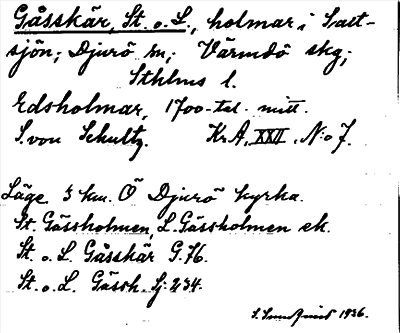 Gåsskär, St. o. L., holmar i Salt-
sjön; Djurö sn; Värmdö skg;
Sthlms l.
Edsholmar, 1700-tal. mitt.
S. von Schultz. Kr. A. XXII. N:o 7.
Läge 3 km. Ö Djurö kyrka.
St. Gässholmen, L. Gässholmen ek.
St. o. L. Gåsskär G. 76.
St. o. L. Gässh. Sj: 234.
1936.